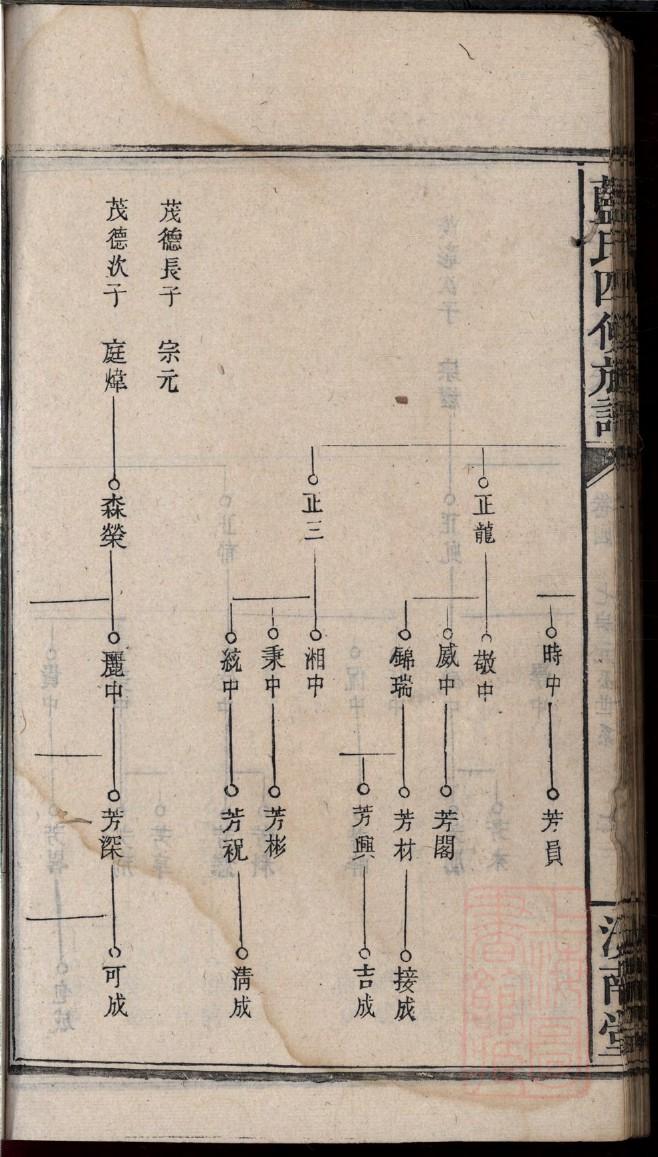 藍氏四修族譜
汝南堂
時中
芳員
正龍
敬中
威中
芳閣
錦瑞
芳材
接成
芳興
吉成
正三
湘中
秉中
芳彬
統中
芳祝
清成
茂德長子 宗元
茂德次子 庭煒
森榮
麗中
芳深
可成